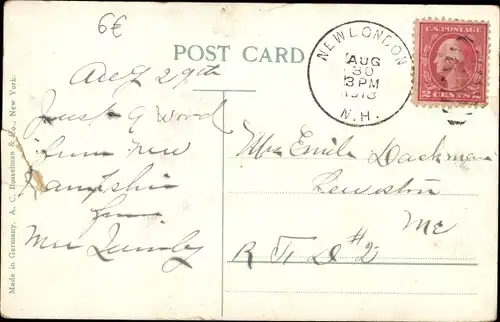 6€
POST CARD
NEW LONDON
AUG
30
3 PM
1913
N.H.
U.S. POSTAGE
2 CENTS 2
Aug 29th
Just a Word
from New
Hampshire
from
Mrs Quimby
Mrs Emile
Lewiston
Me
R F D #2
Made in Germany. A. C. Bosselman & Co., New York.